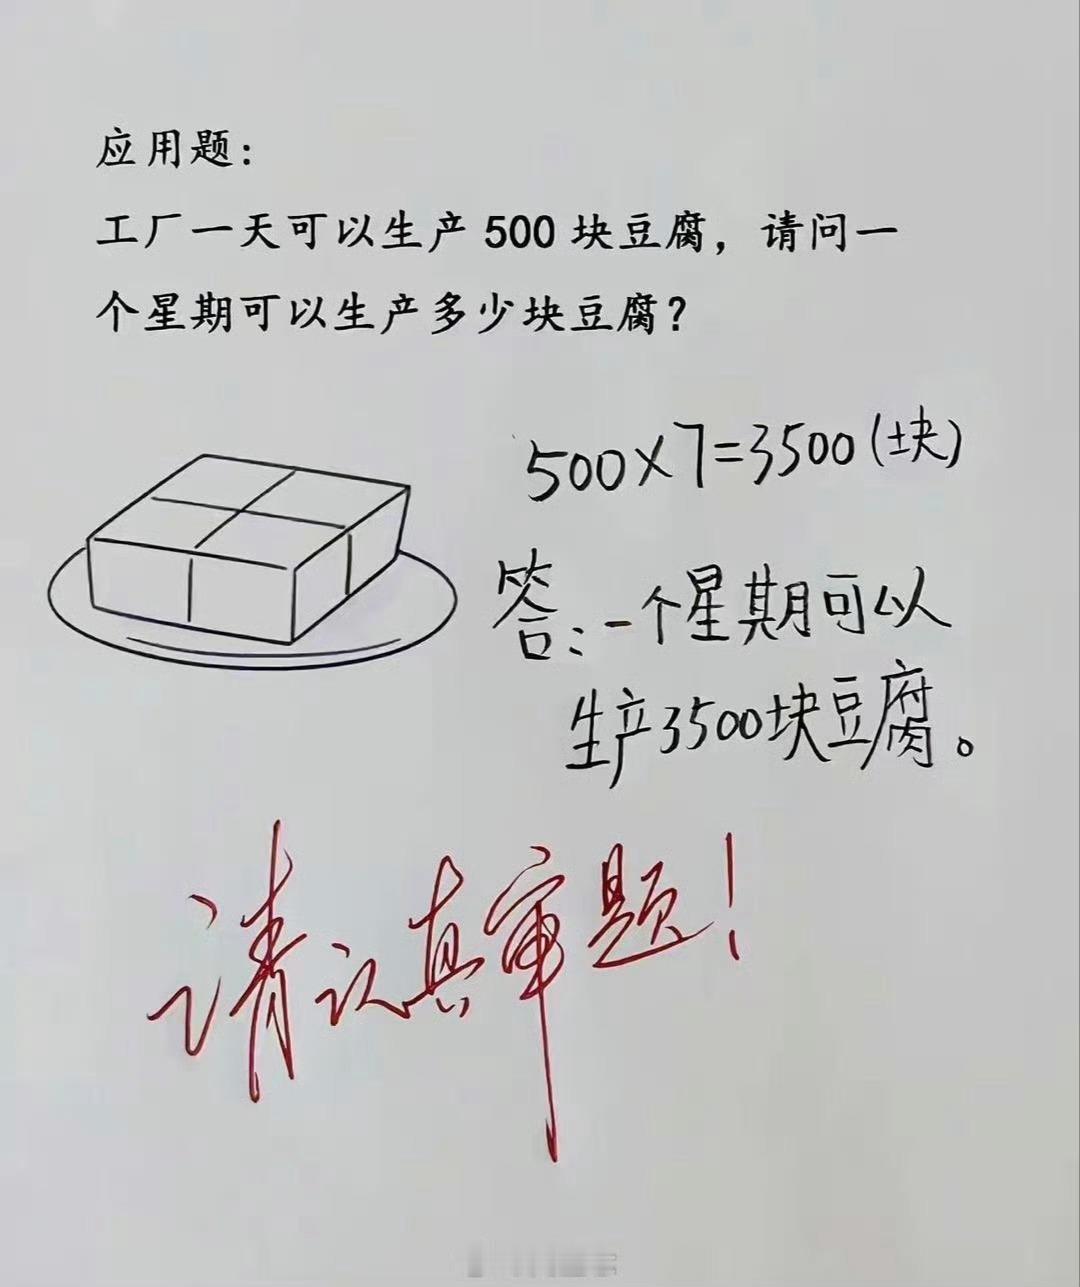 应用题：
工厂一天可以生产 500 块豆腐，请问一
个星期可以生产多少块豆腐？
500×7=3500(块)
答：一个星期可以
生产3500块豆腐。
请认真审题！